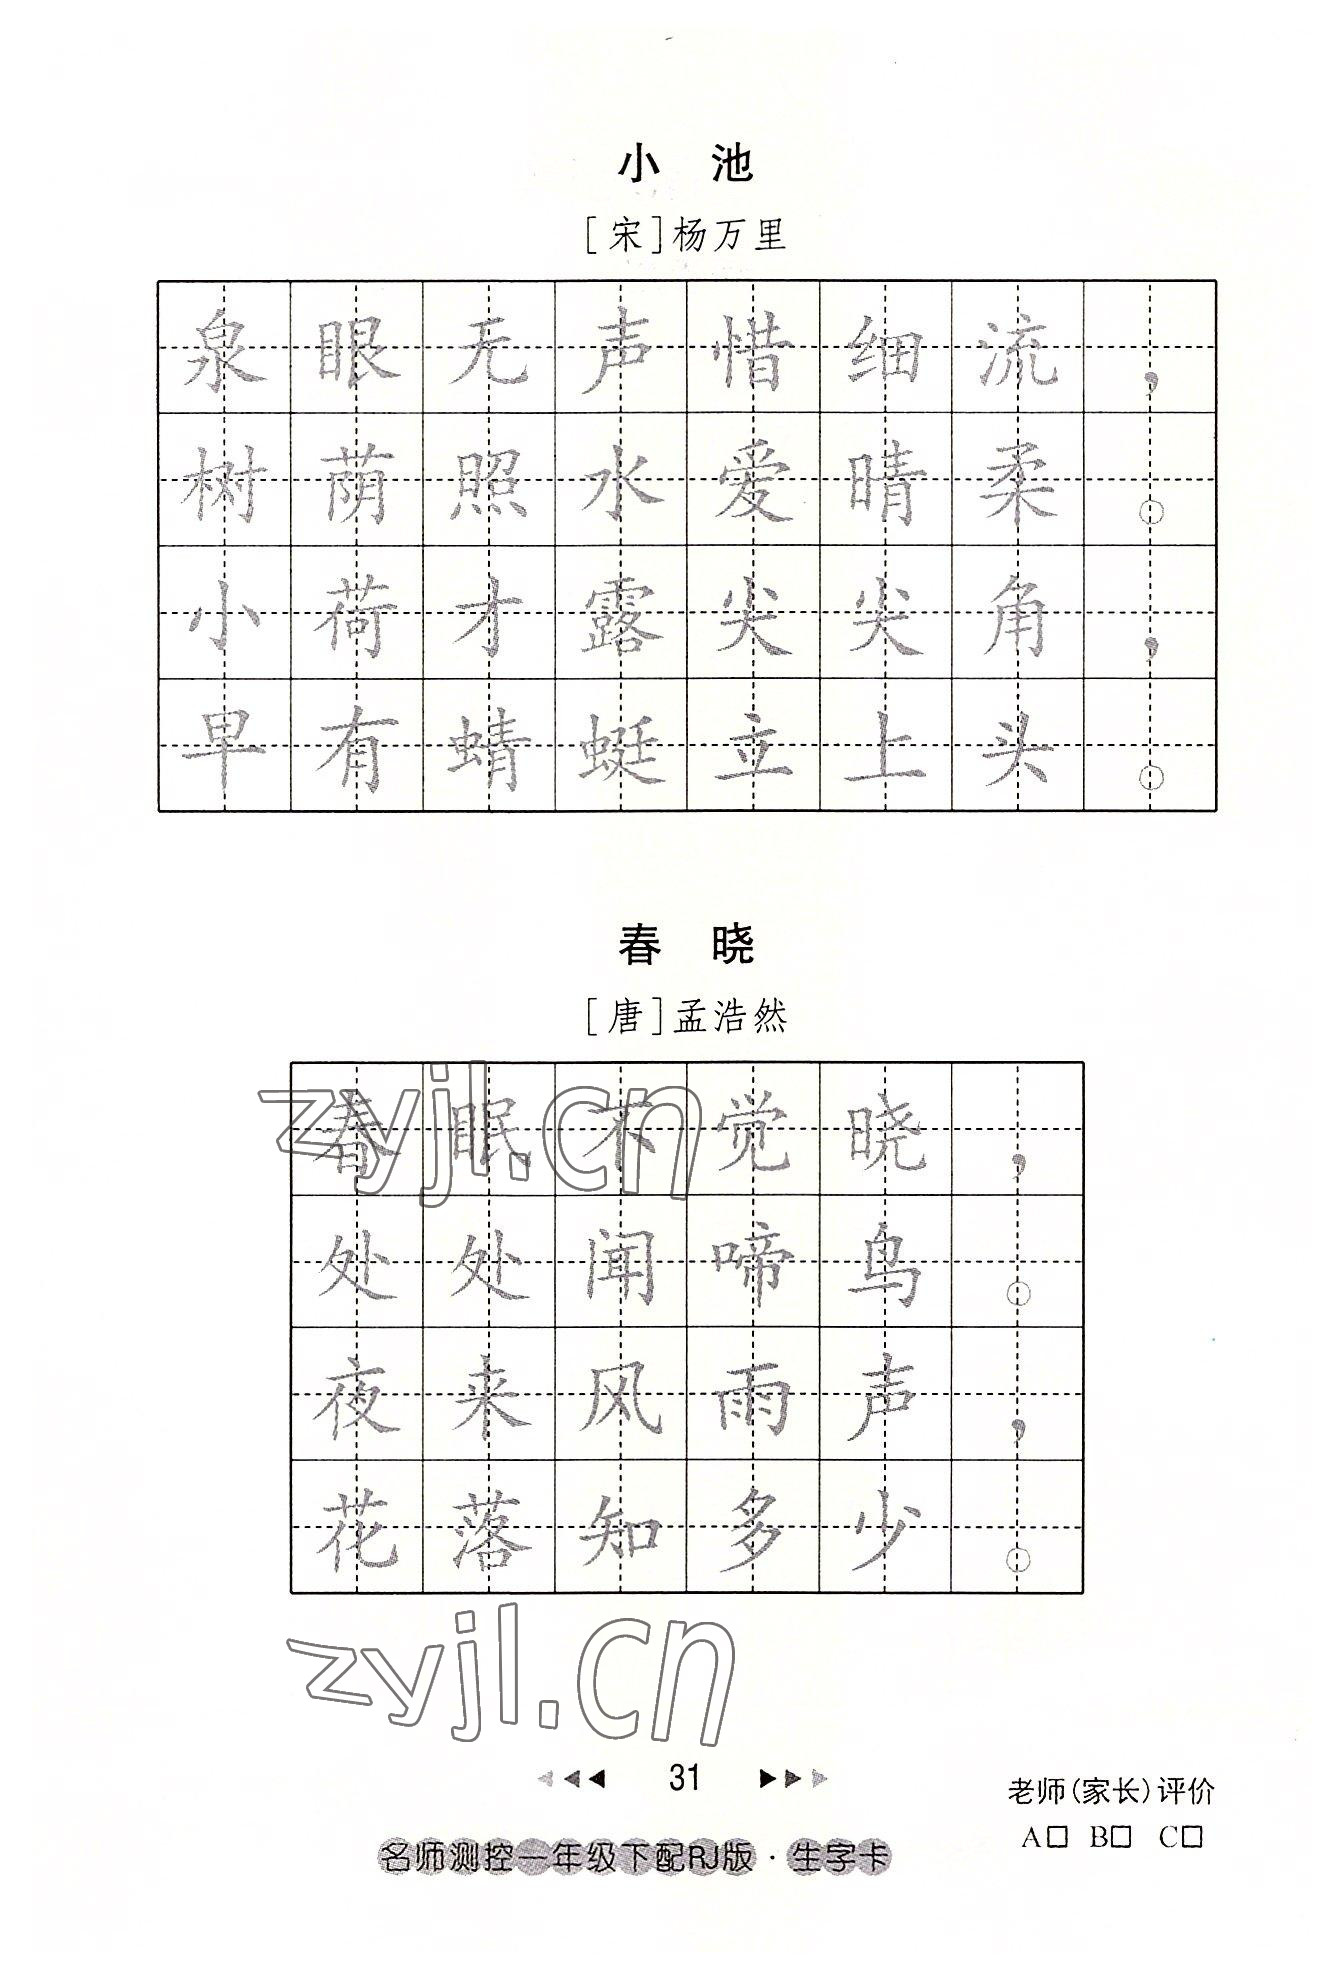 小 池
[宋]杨万里
泉眼无声惜细流，
树荫照水爱晴柔。
小荷才露尖尖角，
早有蜻蜓立上头。
春 晓
[唐]孟浩然
春眠不觉晓，
处处闻啼鸟。
夜来风雨声，
花落知多少。
zyjl.cn
zyjl.cn
31
老师(家长)评价
A□ B□ C□
名师测控一年级下配RJ版·生字卡